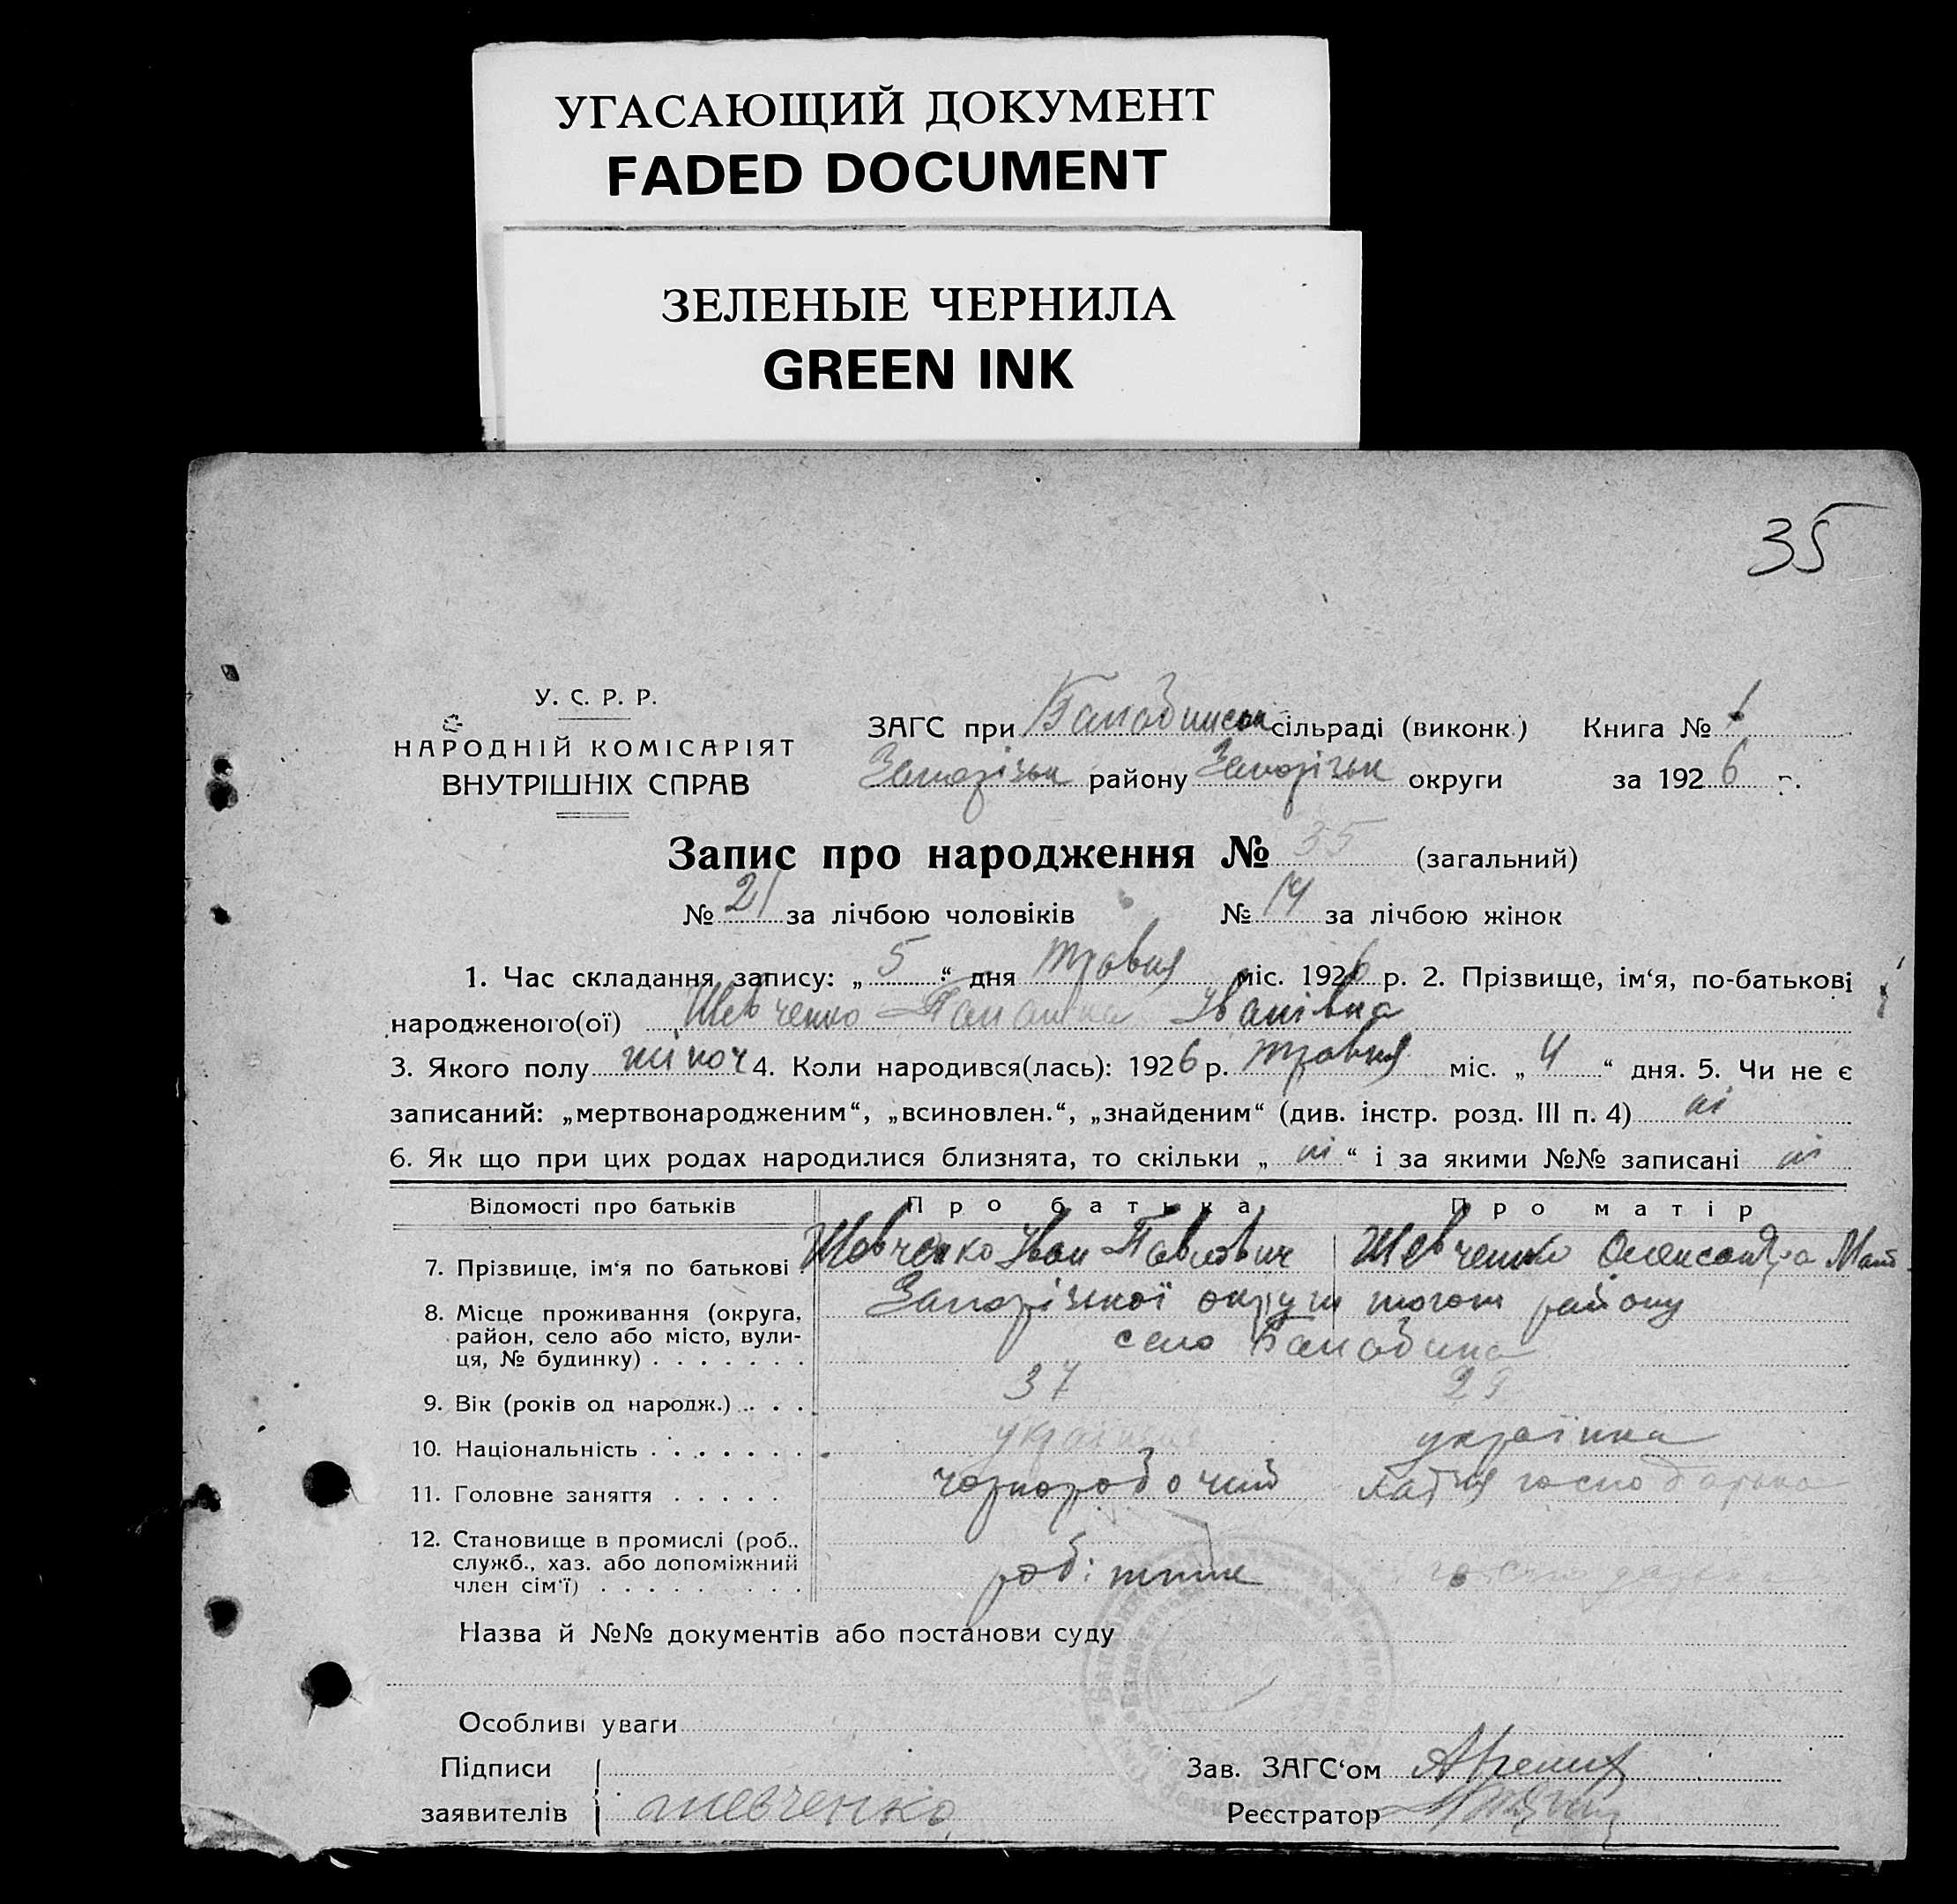 УГАСАЮЩИЙ ДОКУМЕНТ
FADED DOCUMENT
ЗЕЛЕНЫЕ ЧЕРНИЛА
GREEN INK
35
У. С. Р. Р.
НАРОДНІЙ КОМІСАРІЯТ
ВНУТРІШНІХ СПРАВ
ЗАГС при сільраді (виконк.) Книга № 1
Запорізьк району Запорізьк округи за 1926 г.
Запис про народження № 35 (загальний)
№ 21 за лічбою чоловіків № 14 за лічбою жінок
1. Час складання запису: „ 5 “ дня травня міс. 1926 р. 2. Прізвище, ім‘я, по-батькові
народженого(ої) Шевченко Іванівна
3. Якого полу жіноч 4. Коли народився(лась): 1926 р. травня міс. „ 4 “ дня. 5. Чи не є
записаний: „мертвонародженим“, „всиновлен.“, „знайденим“ (див. інстр. розд. III п. 4) ні
6. Як що при цих родах народилися близнята, то скільки „ ні “ і за якими №№ записані ні
Відомості про батьків Про батька Про матір
7. Прізвище, ім‘я по батькові Шевченко Іван Павлович Шевченко Олександра
8. Місце проживання (округа, Запорізької округи того ж району
район, село або місто, вули- село
ця, № будинку)
9. Вік (років од народж.) 37
10. Національність українець українка
11. Головне заняття чорноробочий хатня господарка
12. Становище в промислі (роб.,
служб., хаз. або допоміжний робітник
член сім‘ї)
Назва й №№ документів або постанови суду
Особливі уваги
Підписи Зав. ЗАГС‘ом
заявителів шевченко Реєстратор